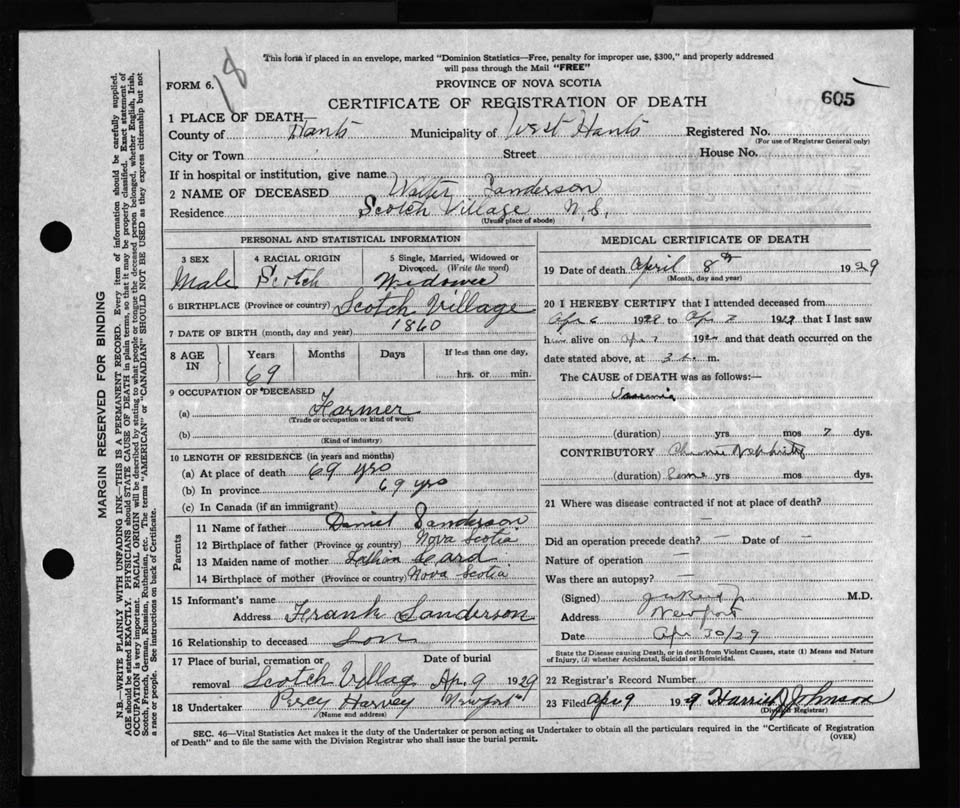 This form if placed in an envelope, marked "Dominion Statistics—Free, penalty for improper use, $300," and properly addressed
will pass through the Mail "FREE"
18
FORM 6.
PROVINCE OF NOVA SCOTIA
CERTIFICATE OF REGISTRATION OF DEATH
605
1 PLACE OF DEATH—
County of Hants Municipality of West Hants Registered No.
(For use of Registrar General only)
City or Town Street House No.
If in hospital or institution, give name
2 NAME OF DECEASED Walter Sanderson
Residence Scotch Village N.S.
(Usual place of abode)
PERSONAL AND STATISTICAL INFORMATION
3 SEX 4 RACIAL ORIGIN 5 Single, Married, Widowed or
Divorced. (Write the word)
Male Scotch Widower
6 BIRTHPLACE (Province or country) Scotch Village
7 DATE OF BIRTH (month, day and year) 1860
8 AGE IN Years Months Days If less than one day,
69 hrs. or min.
9 OCCUPATION OF DECEASED
(a) Farmer
(Trade or occupation or kind of work)
(b)
(Kind of industry)
10 LENGTH OF RESIDENCE (in years and months)
(a) At place of death 69 yrs
(b) In province 69 yrs
(c) In Canada (if an immigrant)
Parents
11 Name of father Daniel Sanderson
12 Birthplace of father (Province or country) Nova Scotia
13 Maiden name of mother
14 Birthplace of mother (Province or country) Nova Scotia
15 Informant's name
Address Frank Sanderson
16 Relationship to deceased Son
17 Place of burial, cremation or Date of burial
removal Scotch Village Ap. 9 1929
18 Undertaker Percy Harvey Newport
(Name and address)
MEDICAL CERTIFICATE OF DEATH
19 Date of death April 8th 1929
(Month, day and year)
20 I HEREBY CERTIFY that I attended deceased from
Apr 6 1929 to Apr 7 1929 that I last saw
him alive on Apr 7 192 and that death occurred on the
date stated above, at 3 m.
The CAUSE of DEATH was as follows:—
(duration) yrs mos 7 dys.
CONTRIBUTORY Chronic Nephritis
(duration) Some yrs mos dys.
21 Where was disease contracted if not at place of death?
—
Did an operation precede death? — Date of —
Nature of operation —
Was there an autopsy? —
(Signed) M.D.
Address Newport
Date Apr 30/29
State the Disease causing Death, or in death from Violent Causes, state (1) Means and Nature
of Injury, (2) whether Accidental, Suicidal or Homicidal.
22 Registrar's Record Number
23 Filed Apr 9 1929 Harried J Johnson
(Division Registrar)
SEC. 46—Vital Statistics Act makes it the duty of the Undertaker or person acting as Undertaker to obtain all the particulars required in the "Certificate of Registration
of Death" and to file the same with the Division Registrar who shall issue the burial permit.
(OVER)
MARGIN RESERVED FOR BINDING
N.B.—WRITE PLAINLY WITH UNFADING INK—THIS IS A PERMANENT RECORD. Every item of information should be carefully supplied.
AGE should be stated EXACTLY. PHYSICIANS should STATE CAUSE OF DEATH in plain terms, so that it may be properly classified. Exact statement of
OCCUPATION is very important. RACIAL ORIGIN will be described by stating to what people or tongue the deceased person belonged, whether English, Irish,
Scotch, French, German, Russian, Ruthenian, etc. The terms "AMERICAN" or "CANADIAN" SHOULD NOT BE USED as they express citizenship but not
a race or people. See instructions on back of Certificate.